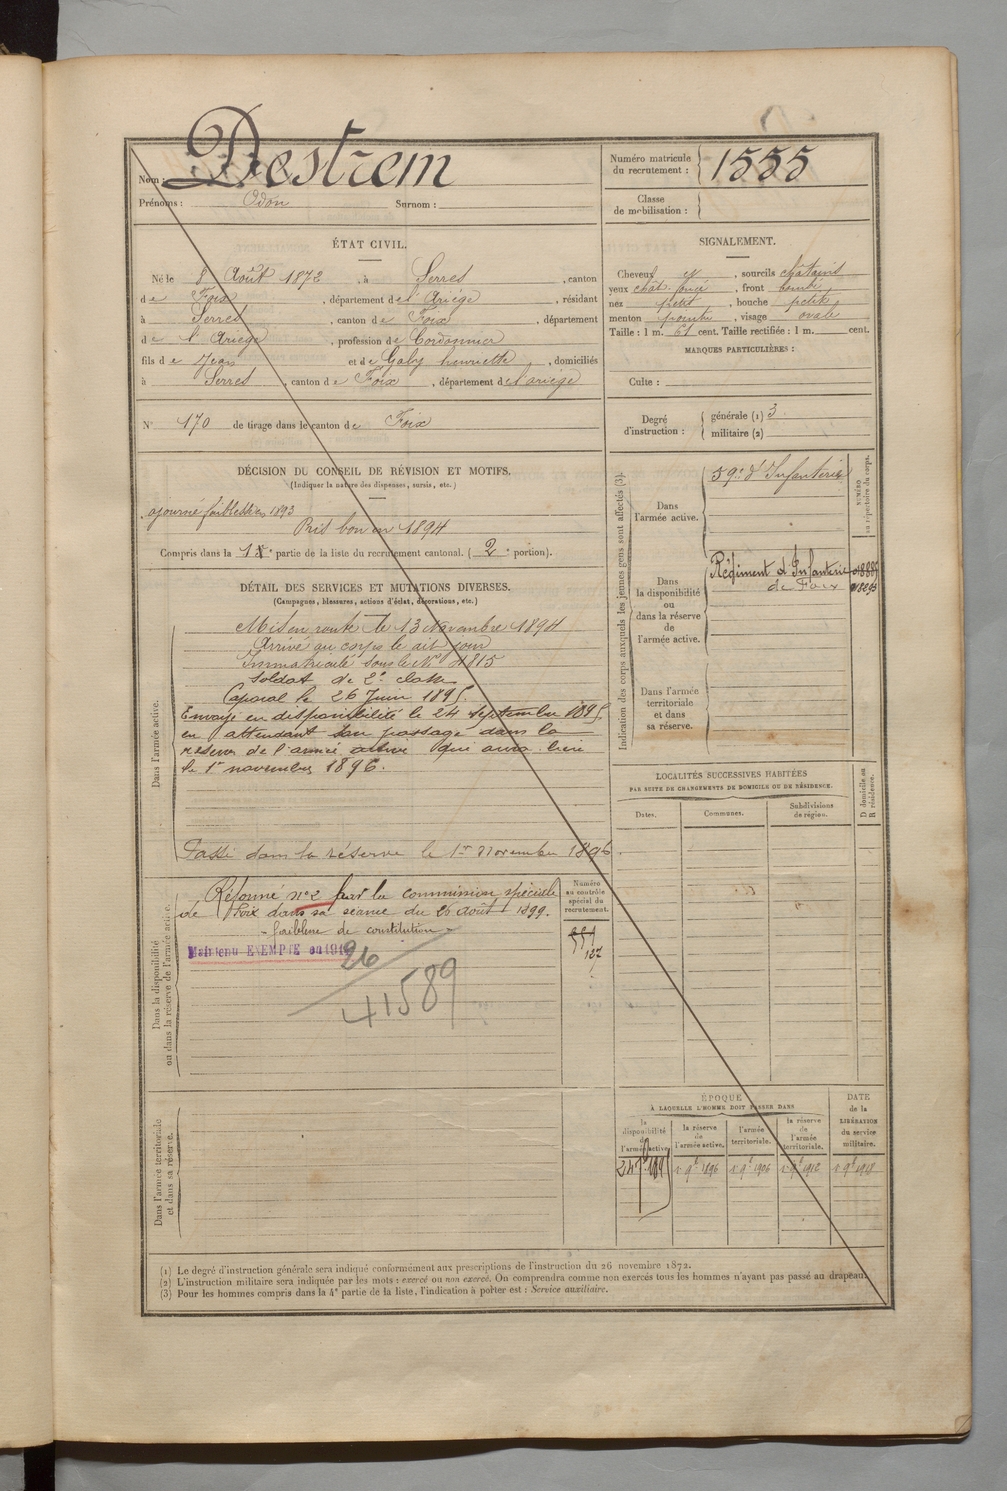 Nom : Destrem
Prénoms : Odon Surnom :
Numéro matricule du recrutement : 1555
Classe de mobilisation :
ÉTAT CIVIL.
Né le 8 Août 1872, à Serres, canton
de Foix, département de l'Ariége, résidant
à Serres, canton de Foix, département
de l'Ariege, profession de Cordonnier
fils de Jean et de Galy henriette, domiciliés
à Serres, canton de Foix, département de l'ariége
N° 170 de tirage dans le canton de Foix
SIGNALEMENT.
Cheveux et, sourcils châtains
yeux chât. foncé, front bombé
nez petit, bouche petite
menton pointu, visage ovale
Taille : 1 m. 61 cent. Taille rectifiée : 1 m. cent.
MARQUES PARTICULIÈRES :
Culte :
Degré d'instruction : générale (1) 3.
militaire (2)
DÉCISION DU CONSEIL DE RÉVISION ET MOTIFS.
(Indiquer la nature des dispenses, sursis, etc.)
ajourné faiblesse en 1893
Pris bon en 1894
Compris dans la 1e partie de la liste du recrutement cantonal. (2e portion).
DÉTAIL DES SERVICES ET MUTATIONS DIVERSES.
(Campagnes, blessures, actions d'éclat, décorations, etc.)
Dans l'armée active.
Mis en route le 13 Novembre 1894
Arrivé au corps le dit jour
Immatriculé sous le N° 4815
Soldat de 2e classe
Caporal le 26 Juin 1895.
Envoyé en disponibilité le 24 Septembre 1895,
en attendant son passage dans la
réserve de l'armée active qui aura lieu
le 1er novembre 1896.
Passé dans la réserve le 1er Novembre 1896
Indication des corps auxquels les jeunes gens sont affectés (3).
NUMÉRO au répertoire du corps.
Dans l'armée active.
59e d'Infanterie
Dans la disponibilité ou dans la réserve de l'armée active.
Régiment d'Infanterie
de Foix
Dans l'armée territoriale et dans sa réserve.
LOCALITÉS SUCCESSIVES HABITÉES
PAR SUITE DE CHANGEMENTS DE DOMICILE OU DE RÉSIDENCE.
Dates. Communes. Subdivisions de région. D domicile ou R résidence.
Dans la disponibilité ou dans la réserve de l'armée active.
Réformé n° 2 par la commission spéciale
de Foix dans sa séance du 26 août 1899.
- faiblesse de constitution -
Maintenu EXEMPTÉ en 191
26
41589
Numéro au contrôle spécial du recrutement.
137
Dans l'armée territoriale et dans sa réserve.
ÉPOQUE
À LAQUELLE L'HOMME DOIT PASSER DANS
la disponibilité de l'armée active
la réserve de l'armée active.
l'armée territoriale.
la réserve de l'armée territoriale.
DATE de la LIBÉRATION du service militaire.
24 7bre 1895 1er 9bre 1896 1er 9bre 1906 1er 9bre 1912 1er 9bre 1918
(1) Le degré d'instruction générale sera indiqué conformément aux prescriptions de l'instruction du 26 novembre 1872.
(2) L'instruction militaire sera indiquée par les mots : exercé ou non exercé. On comprendra comme non exercés tous les hommes n'ayant pas passé au drapeau.
(3) Pour les hommes compris dans la 4e partie de la liste, l'indication à porter est : Service auxiliaire.